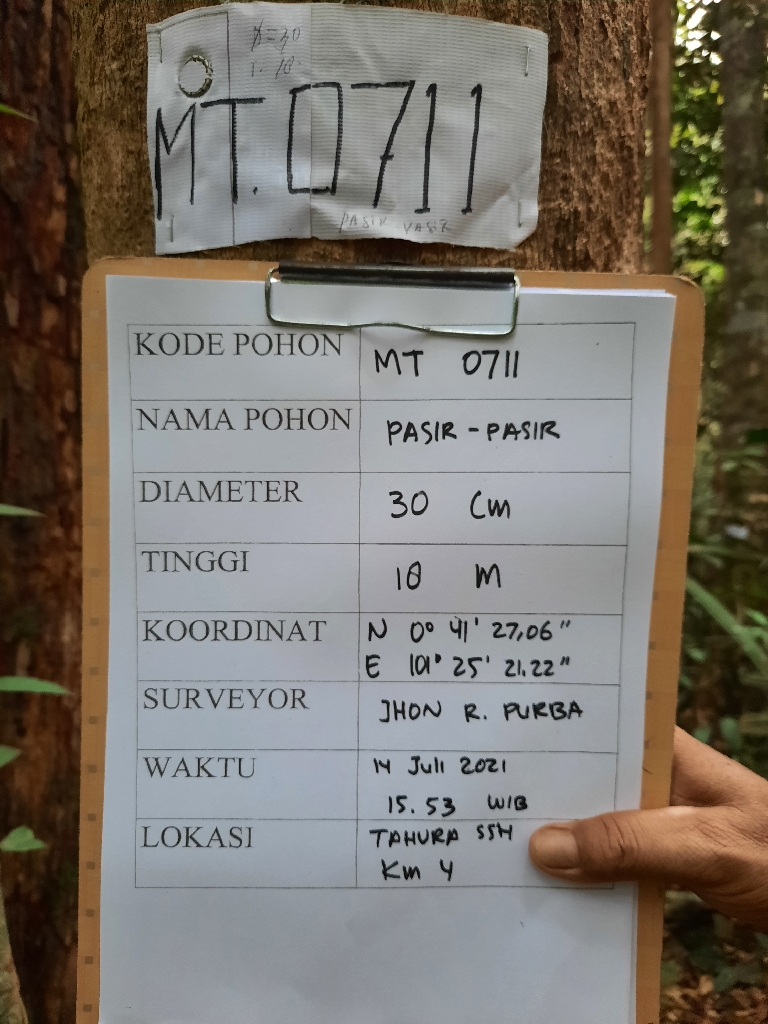 Ø=30
T. 18
MT. 0711
PASIR PASIR
KODE POHON MT 0711
NAMA POHON PASIR-PASIR
DIAMETER 30 Cm
TINGGI 18 M
KOORDINAT N 0° 41' 27,06"
E 101° 25' 21.22"
SURVEYOR JHON R. PURBA
WAKTU 14 Juli 2021
15.53 WIB
LOKASI TAHURA SSH
Km 4